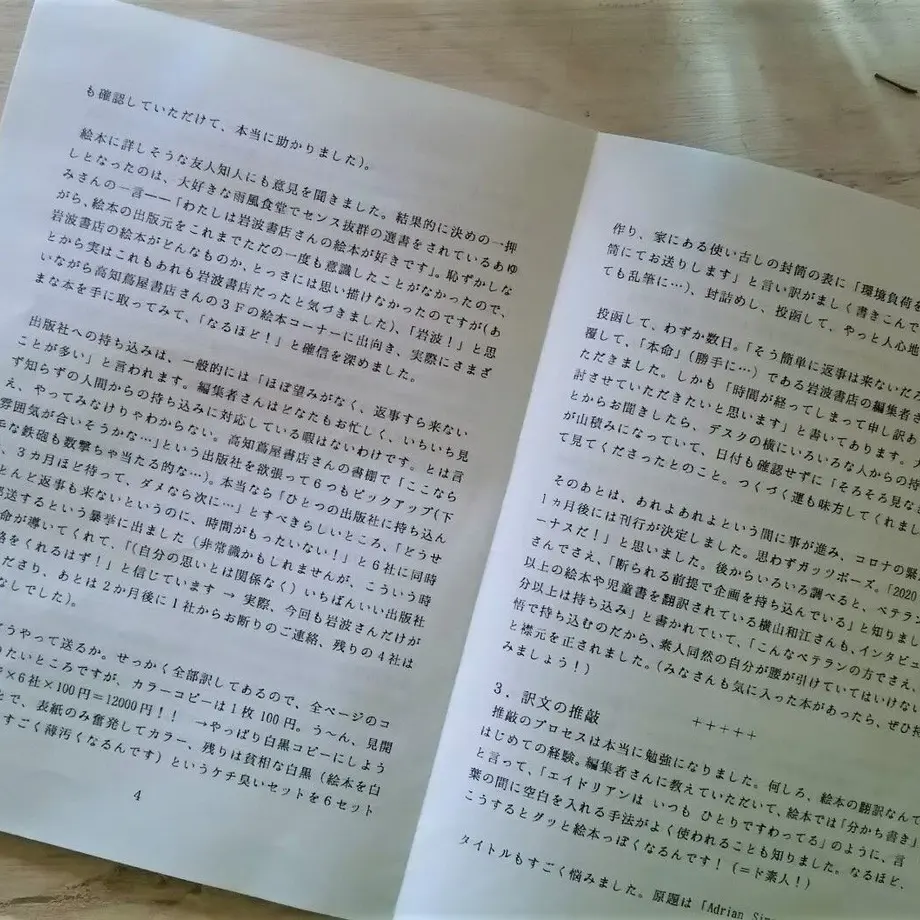 も確認していただけて、本当に助かりました)。
絵本に詳しそうな友人知人にも意見を聞きました。結果的に決めの一押
しとなったのは、大好きな雨風食堂でセンス抜群の選書をされているあゆ
みさんの一言――「わたしは岩波書店さんの絵本が好きです」。恥ずかしな
がら、絵本の出版元をこれまでただの一度も意識したことがなかったので、
岩波書店の絵本がどんなものか、とっさには思い描けなかったのですが(あ
とから実はこれもあれも岩波書店だったと気づきました)、「岩波!」と思
いながら高知蔦屋書店さんの3Fの絵本コーナーに出向き、実際にさまざ
まな本を手に取ってみて、「なるほど!」と確信を深めました。
出版社への持ち込みは、一般的には「ほぼ望みがなく、返事すら来ない
ことが多い」と言われます。編集者さんはどなたもお忙しく、いちいち見
ず知らずの人間からの持ち込みに対応している暇はないわけです。とは言
え、やってみなけりゃわからない。高知蔦屋書店さんの書棚で「ここなら
雰囲気が合いそうかな…」という出版社を欲張って6つもピックアップ(下
手な鉄砲も数撃ちゃ当たる的な…)。本当なら「ひとつの出版社に持ち込ん
、3カ月ほど待って、ダメなら次に…」とすべきらしいところ、「どうせ
とんど返事も来ないというのに、時間がもったいない!」と6社に同時
送するという暴挙に出ました(非常識かもしれませんが、こういう時
命が導いてくれて、「(自分の思いとは関係なく)いちばんいい出版社
絡をくれるはず!」と信じています → 実際、今回も岩波さんだけが
ださり、あとは2か月後に1社からお断りのご連絡、残りの4社は
なしでした)。
どうやって送るか。せっかく全部訳してあるので、全ページのコ
りたいところですが、カラーコピーは1枚100円。う〜ん、見開
×6社×100円=12000円!! →やっぱり白黒コピーにしよう
とで、表紙のみ奮発してカラー、残りは貧相な白黒(絵本を白
すごく薄汚くなるんです)というケチ臭いセットを6セット
4
作り、家にある使い古しの封筒の表に「環境負荷を
筒にてお送りします」と言い訳がましく書きこんで
ても乱筆に…)、封詰めし、投函して、やっと人心地
投函して、わずか数日。「そう簡単に返事は来ないだろ
覆して、「本命」(勝手に…)である岩波書店の編集者さ
ただきました。しかも「時間が経ってしまって申し訳あ
討させていただきたいと思います」と書いてあります。
とからお聞きしたら、デスクの横にいろいろな人からの持
が山積みになっていて、日付も確認せずに「そろそろ見な
て見てくださったとのこと。つくづく運も味方してくれまし
そのあとは、あれよあれよという間に事が進み、コロナの緊
1ヵ月後には刊行が決定しました。思わずガッツポーズ。「2020
ーナスだ!」と思いました。後からいろいろ調べると、ベテラン
さんでさえ、「断られる前提で企画を持ち込んでいる」と知りまし
以上の絵本や児童書を翻訳されている横山和江さんも、インタビュ
分以上は持ち込み」と書かれていて、「こんなベテランの方でさえ、
悟で持ち込むのだから、素人同然の自分が腰が引けていてはいけない
と襟元を正されました。(みなさんも気に入った本があったら、ぜひ持
みましょう!)
+++++
3.訳文の推敲
推敲のプロセスは本当に勉強になりました。何しろ、絵本の翻訳なんて
はじめての経験。編集者さんに教えていただいて、絵本では「分かち書き」
と言って、「エイドリアンは いつも ひとりですわってる」のように、言
葉の間に空白を入れる手法がよく使われることも知りました。なるほど、
こうするとグッと絵本っぽくなるんです!(=ド素人!)
タイトルもすごく悩みました。原題は「Adrian